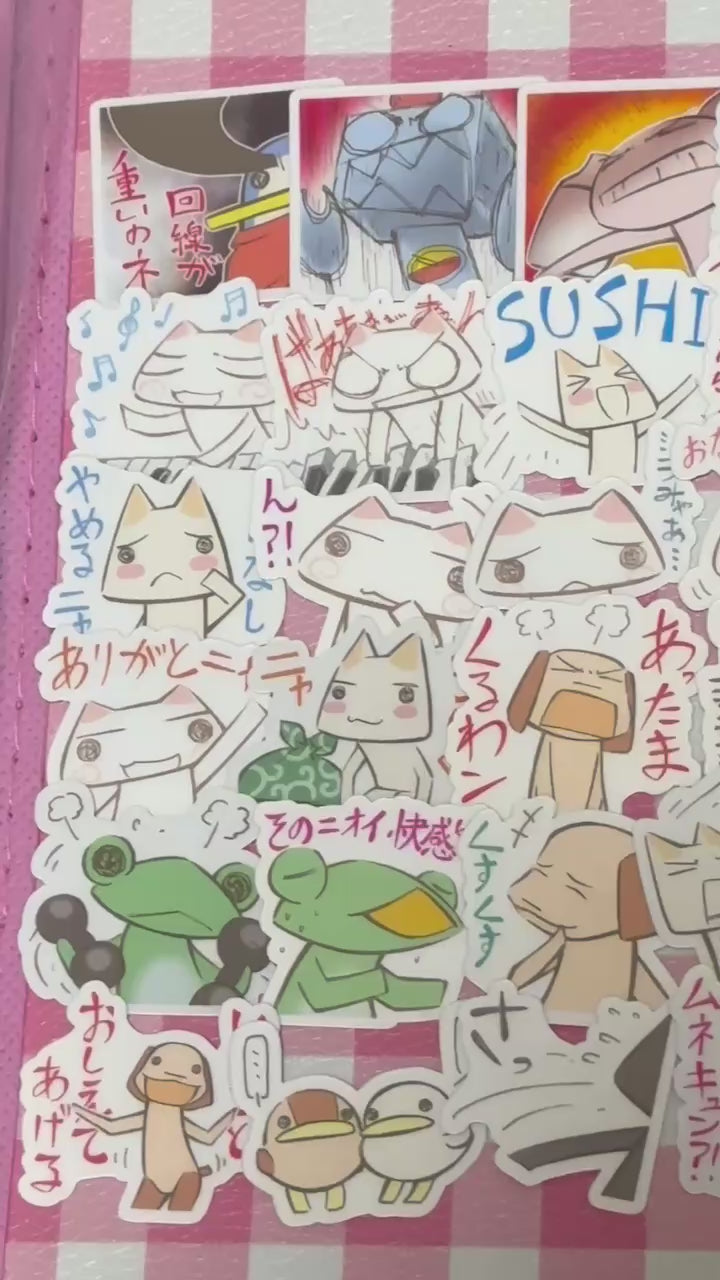 回線が
重いのネ
SUSHI
やめるニャ
なし
ん?!
みゃあ…
ありがとニィ
ニャ
あったま
くるわン
そのニオイ、快感
くすくす
おしえて
あげる
さっ
ムネキュン?!